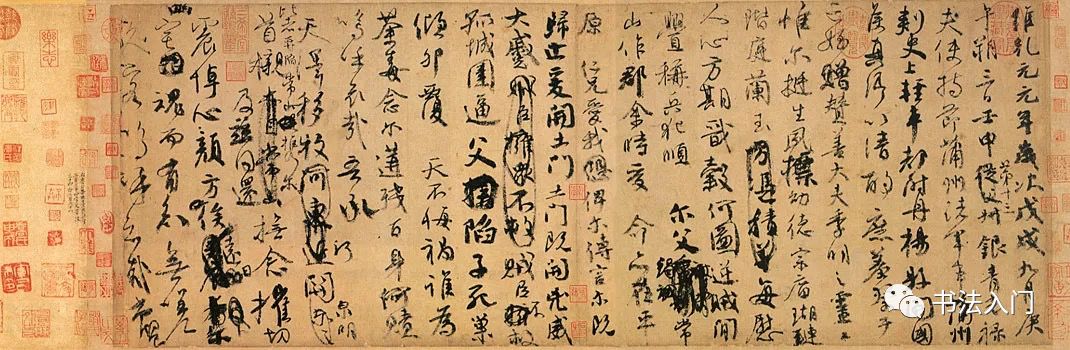 維乾元元年歲次戊戌九月庚
午朔三日壬申第十三叔從父銀青光祿
夫使持節蒲州諸軍事蒲州
刺史上輕車都尉丹楊縣開國
侯真卿以清酌庶羞祭于
亡姪贈贊善大夫季明之靈曰
惟爾挺生夙標幼德宗廟瑚璉
階庭蘭玉方憑積善每慰
人心方期戩穀何圖逆賊間
釁稱兵犯順爾父竭誠常
山作郡余時受命亦在平
原仁兄愛我俾爾傳言爾既
歸止爰開土門土門既開兇威
大蹙賊臣擁眾不救賊臣不救
孤城圍逼父陷子死巢
傾卵覆天不悔禍誰為
荼毒念爾遘殘百身何贖
嗚呼哀哉吾承
天澤移牧河關泉明
比者再陷常山攜爾
首櫬及茲同還撫念摧切
震悼心顏方俟遠日
卜爾幽宅魂而有知無嗟
久客嗚呼哀哉尚饗
书法入门